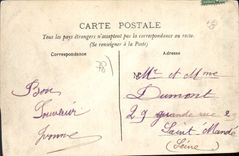 CARTE POSTALE
Tous les pays étrangers n'acceptent pas la correspondance au recto.
(Se renseigner à la Poste)
Correspondance
Adresse
Bon
Souvenir
Yvonne
Mr et Mme
Dumont
29 grande rue
Saint Mandé
(Seine)